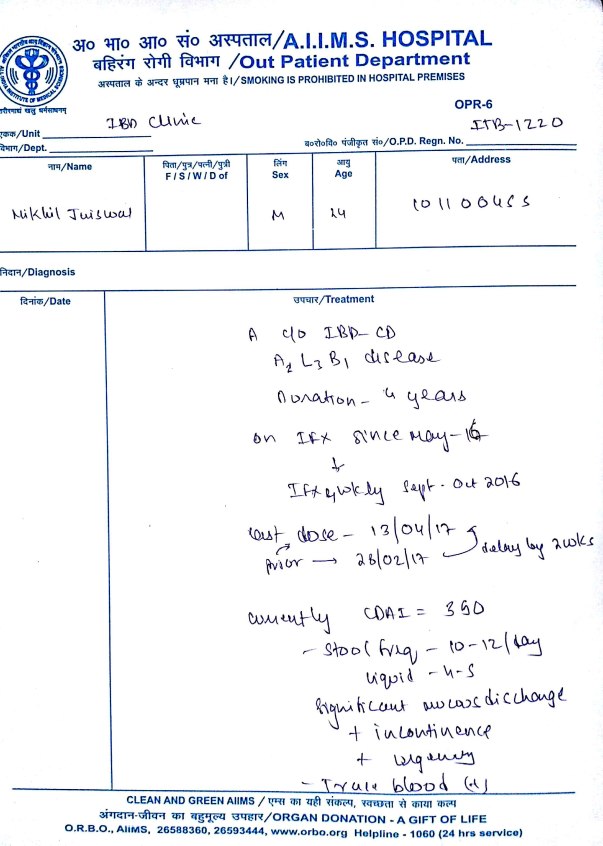 अ० भा० आ० सं० अस्पताल/A.I.I.M.S. HOSPITAL
बहिरंग रोगी विभाग /Out Patient Department
अस्पताल के अन्दर धूम्रपान मना है।/SMOKING IS PROHIBITED IN HOSPITAL PREMISES
OPR-6
एकक/Unit IBD Clinic
ITB-1220
विभाग/Dept.
ब०रो०वि० पंजीकृत सं०/O.P.D. Regn. No.
नाम/Name पिता/पुत्र/पत्नी/पुत्री लिंग आयु पता/Address
F / S / W / D of Sex Age
Nikhil Jaiswal M 24 101100455
निदान/Diagnosis
दिनांक/Date उपचार/Treatment
A c/o IBD-CD
A2 L3 B1 disease
Duration - 4 years
on IFX since May-16
↓
IFX 4wkly Sept - Oct 2016
last dose - 13/04/17
prior → 28/02/17 delay by 2wks
currently CDAI = 390
- Stool freq - 10-12/day
liquid - 4-5
Significant mucous discharge
+ incontinence
+ urgency
- Trace blood (+)
CLEAN AND GREEN AIIMS / एम्स का यही संकल्प, स्वच्छता से काया कल्प
अंगदान-जीवन का बहुमूल्य उपहार/ORGAN DONATION - A GIFT OF LIFE
O.R.B.O., AIIMS, 26588360, 26593444, www.orbo.org Helpline - 1060 (24 hrs service)